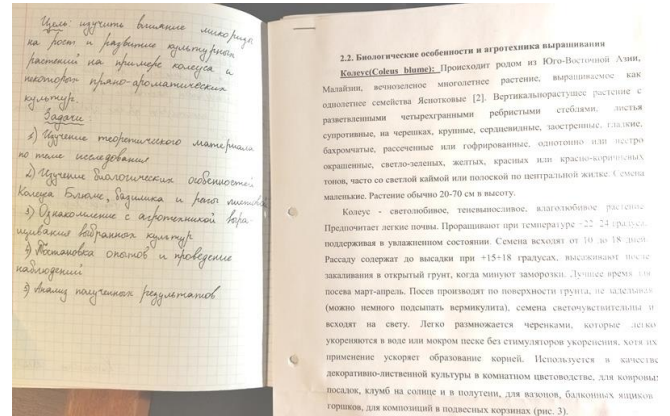 Цель: изучить влияние микоризы
на рост и развитие культурных
растений на примере колеуса и
некоторых пряно-ароматических
культур.
Задачи
1) Изучение теоретического материала
по теме исследования
2) Изучение биологических особенностей
Колеуса Блюме, базилика и репы листовой
3) Ознакомление с агротехникой выра-
щивания выбранных культур
4) Постановка опытов и проведение
наблюдений
5) Анализ полученных результатов
2.2. Биологические особенности и агротехника выращивания
Колеус(Coleus blume): Происходит родом из Юго-Восточной Азии,
Малайзии, вечнозеленое многолетнее растение, выращиваемое как
однолетнее семейства Яснотковые [2]. Вертикальнорастущее растение с
разветвленными четырехгранными ребристыми стеблями, листья
супротивные, на черешках, крупные, сердцевидные, заостренные, гладкие,
бахромчатые, рассеченные или гофрированные, однотонно или пестро
окрашенные, светло-зеленых, желтых, красных или красно-коричневых
тонов, часто со светлой каймой или полоской по центральной жилке. Семена
маленькие. Растение обычно 20-70 см в высоту.
Колеус - светолюбивое, теневыносливое, влаголюбивое растение
Предпочитает легкие почвы. Проращивают при температуре +22–24 градуса,
поддерживая в увлажненном состоянии. Семена всходят от 10 до 18 дней.
Рассаду содержат до высадки при +15+18 градусах, высаживают после
закаливания в открытый грунт, когда минуют заморозки. Лучшее время для
посева март-апрель. Посев производят по поверхности грунта, не заделывая
(можно немного подсыпать вермикулита), семена светочувствительны и
всходят на свету. Легко размножается черенками, которые легко
укореняются в воде или мокром песке без стимуляторов укоренения, хотя их
применение ускоряет образование корней. Используется в качестве
декоративно-лиственной культуры в комнатном цветоводстве, для ковровых
посадок, клумб на солнце и в полутени, для вазонов, балконных ящиков
горшков, для композиций в подвесных корзинах (рис. 3).